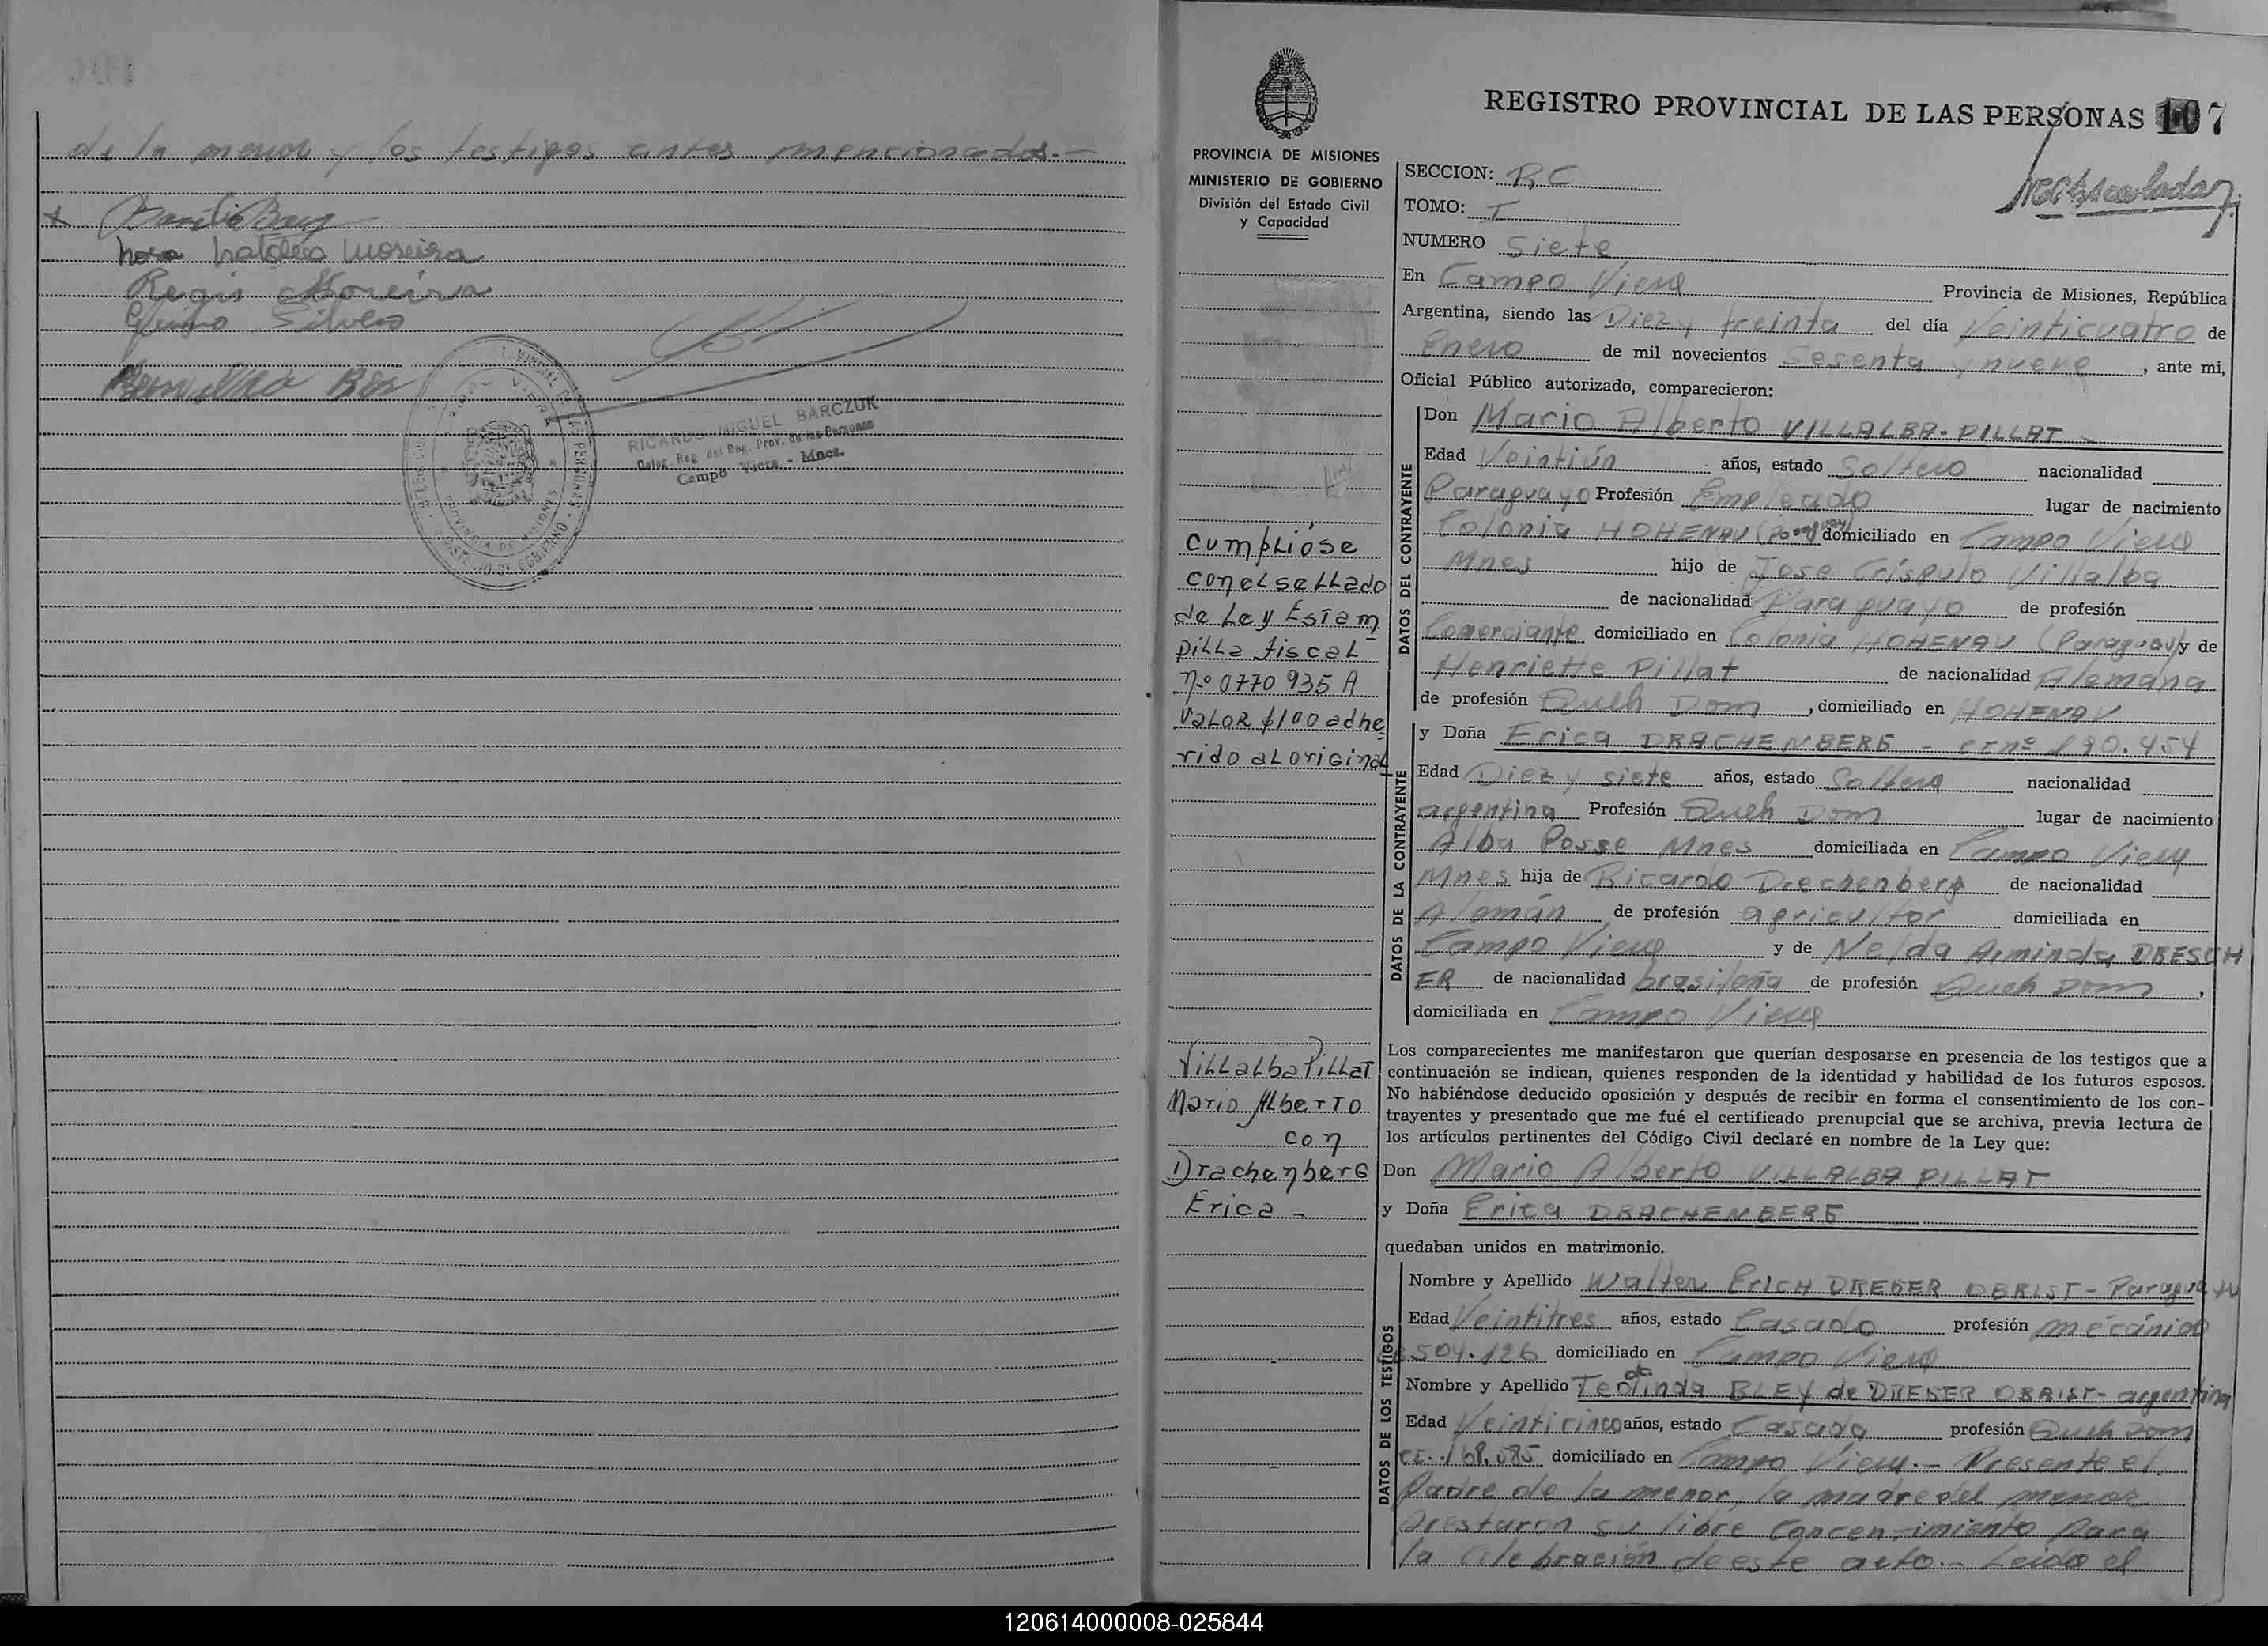 de la menor y los testigos antes mencionados.-
Regis Moreira
Silvero
RICARDO MIGUEL BARCZUK
Deleg. Reg. del Reg. Prov. de las Personas
Campo Viera - Mnes.
REGISTRO PROVINCIAL DE LAS PERSONAS 107
PROVINCIA DE MISIONES
MINISTERIO DE GOBIERNO
División del Estado Civil
y Capacidad
SECCION: RC
TOMO: I
NUMERO Siete
En Campo Viera Provincia de Misiones, República
Argentina, siendo las Diez y treinta del día Veinticuatro de
Enero de mil novecientos sesenta y nueve, ante mi,
Oficial Público autorizado, comparecieron:
DATOS DEL CONTRAYENTE
Don Mario Alberto VILLALBA-PILLAT -
Edad Veintiún años, estado Soltero nacionalidad
Paraguayo Profesión Empleado lugar de nacimiento
Colonia HOHENAU (Paraguay) domiciliado en Campo Viera
Mnes hijo de Jose Críspulo Villalba
de nacionalidad Paraguayo de profesión
Comerciante domiciliado en Colonia HOHENAU (Paraguay) y de
Henriette Pillat de nacionalidad Alemana
de profesión Queh Dom, domiciliado en HOHENAU
DATOS DE LA CONTRAYENTE
y Doña Erica DRACHENBERG - crnº 190.454
Edad Diez y siete años, estado Soltera nacionalidad
argentina Profesión Queh Dom lugar de nacimiento
Alba Posse Mnes domiciliada en Campo Viera
Mnes hija de Ricardo Drechenberg de nacionalidad
Alemán de profesión agricultor domiciliada en
Campo Viera y de Nelda Arminda DRESCH
ER de nacionalidad brasileña de profesión Queh Dom,
domiciliada en Campo Viera
cumplióse
con el sellado
de Ley Estam
pilla fiscal
nº 0770 935 A
valor $100 adhe
rido al original
Villalba Pillat
Mario Alberto
con
Drachenberg
Erica -
Los comparecientes me manifestaron que querían desposarse en presencia de los testigos que a
continuación se indican, quienes responden de la identidad y habilidad de los futuros esposos.
No habiéndose deducido oposición y después de recibir en forma el consentimiento de los con-
trayentes y presentado que me fué el certificado prenupcial que se archiva, previa lectura de
los artículos pertinentes del Código Civil declaré en nombre de la Ley que:
Don Mario Alberto VILLALBA PILLAT
y Doña Erica DRACHENBERG
quedaban unidos en matrimonio.
DATOS DE LOS TESTIGOS
Nombre y Apellido Walter Erich DREGER OBRIST - Paraguayo
Edad Veintitres años, estado Casado profesión mécánico
504.126 domiciliado en Campo Viera
Nombre y Apellido Teolinda BLEY de DREGER OBRIST - argentina
Edad Veinticinco años, estado Casada profesión Queh Dom
CI. 168.585 domiciliado en Campo Viera.- Presente el
Padre de la menor, la madre del menor
prestaron su libre concentimiento para
la celebración de este acto.- Leida el
120614000008-025844